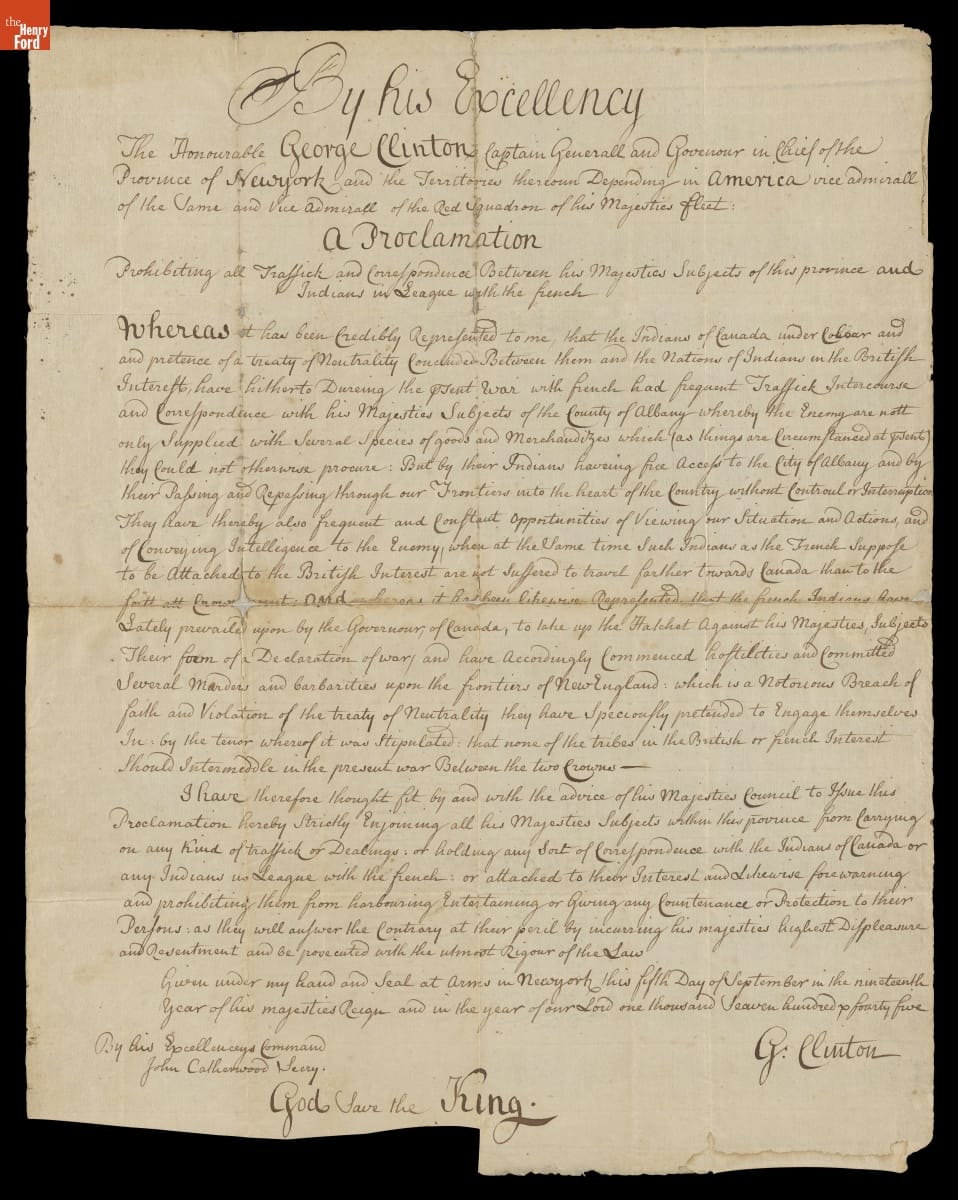 the
Henry
Ford
By his Excellency
The Honourable George Clinton Captain Generall and Govenour in Chief of the
Province of Newyork and the Territories thereon Depending in America vice admirall
of the Same and Vice Admirall of the Red Squadron of his Majesties fleet:
A Proclamation
Prohibiting all Traffick and Correspondence Between his Majesties Subjects of this province and
Indians in League with the french
Whereas it has been Credibly Represented to me, that the Indians of Canada under Colour and
and pretence of a treaty of Neutrality Concluded Between them and the Nations of Indians in the British
Interest, have hitherto Dureing the psent War with french had frequent Traffick Intercourse
and Correspondence with his Majesties Subjects of the County of Albany whereby the Enemy are nott
only Supplied with Several Species of goods and Merchandizes which (as things are Circumstanced at psent)
they Could not otherwise procure: But by their Indians haveing free Access to the City of Albany and by
their Passing and Repassing through our Frontiers into the heart of the Country without Controul or Interruption
They have thereby also frequent and Constant Opportunities of Viewing our Situation and Actions, and
of Conveying Intelligence to the Enemy, when at the Same time Such Indians as the French Suppose
to be Attached to the British Interest are not Suffered to travel farther towards Canada than to the
fortt att Crown: And whereas it has been likewise Represented that the french Indians have
Lately prevailed upon by the Governour, of Canada, to take up the Hatchet Against his Majesties, Subjects
Their form of a Declaration of war, and have Accordingly Commenced hostilities and Committed
Several Murders and barbarities upon the frontiers of New England: which is a Notorious Breach of
faith and Violation of the treaty of Neutrality they have Speciously pretended to Engage themselves
In: by the tenor whereof it was Stipulated: that none of the tribes in the British or french Interest
Should Intermeddle in the present war Between the two Crowns —
I have therefore thought fit by and with the advice of his Majesties Council to Issue this
Proclamation hereby Strictly Enjoining all his Majesties Subjects within this province from Carrying
on any Kind of traffick or Dealings: or holding any Sort of Correspondence with the Indians of Canada or
any Indians in League with the french: or attached to their Interest and Likewise forewarning
and prohibiting them from harbouring Entertaining or Giving any Countenance or Protection to their
Persons: as they will answer the Contrary at their peril by incurring his majesties highest Displeasure
and Resentment and be prosecuted with the utmost Rigour of the Law
Given under my hand and Seal at Arms in Newyork this fifth Day of September in the nineteenth
Year of his majesties Reign and in the year of our Lord one thousand Seaven hundred & fourty five
By his Excellenceys Command
John Catherwood Secry.
G: Clinton
God Save the King.